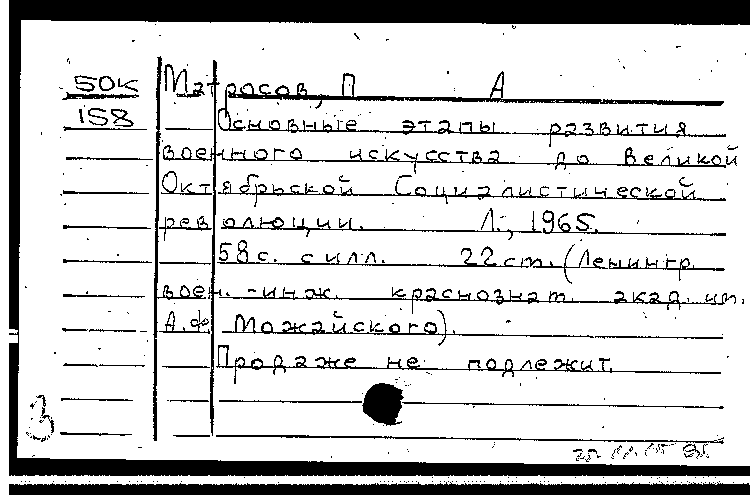 50К Матросов, П А
158 Основные этапы развития
военного искусства до Великой
Октябрьской Социалистической
революции. Л., 1965.
58с. с илл. 22cm. (Ленингр.
воен.-инж. краснознам. акад. им.
А.Ф. Можайского).
Продаже не подлежит.
3